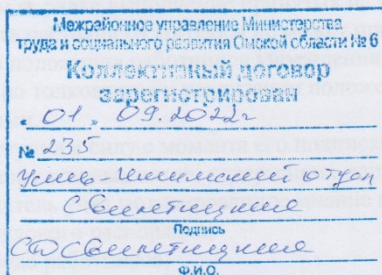 Межрайонное управление Министерства
труда и социального развития Омской области № 6
Коллективный договор
зарегистрирован
« 01 » 09.2022г
№ 235
Усть-Ишимский отдел
Подпись
Ф.И.О.